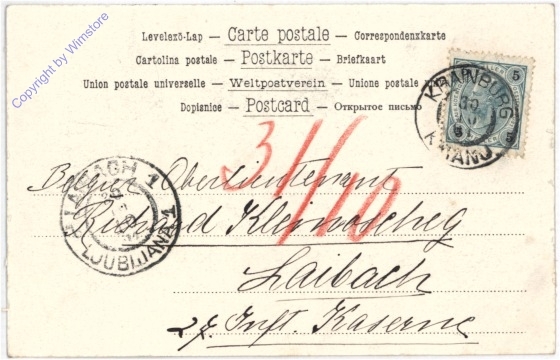 Copyright by Wimstore
Levelező-Lap — Carte postale — Correspondenzkarte
Cartolina postale — Postkarte — Briefkaart
Union postale universelle — Weltpostverein — Unione postale
Dopisnice — Postcard — Открытое письмо
5 5
KRAINBURG
KRANJ
31/10
Oberlieutenant
Richard Kleinoscheg
Laibach
27. Inft. Kaserne
LAIBACH 1
LJUBLJANA 1